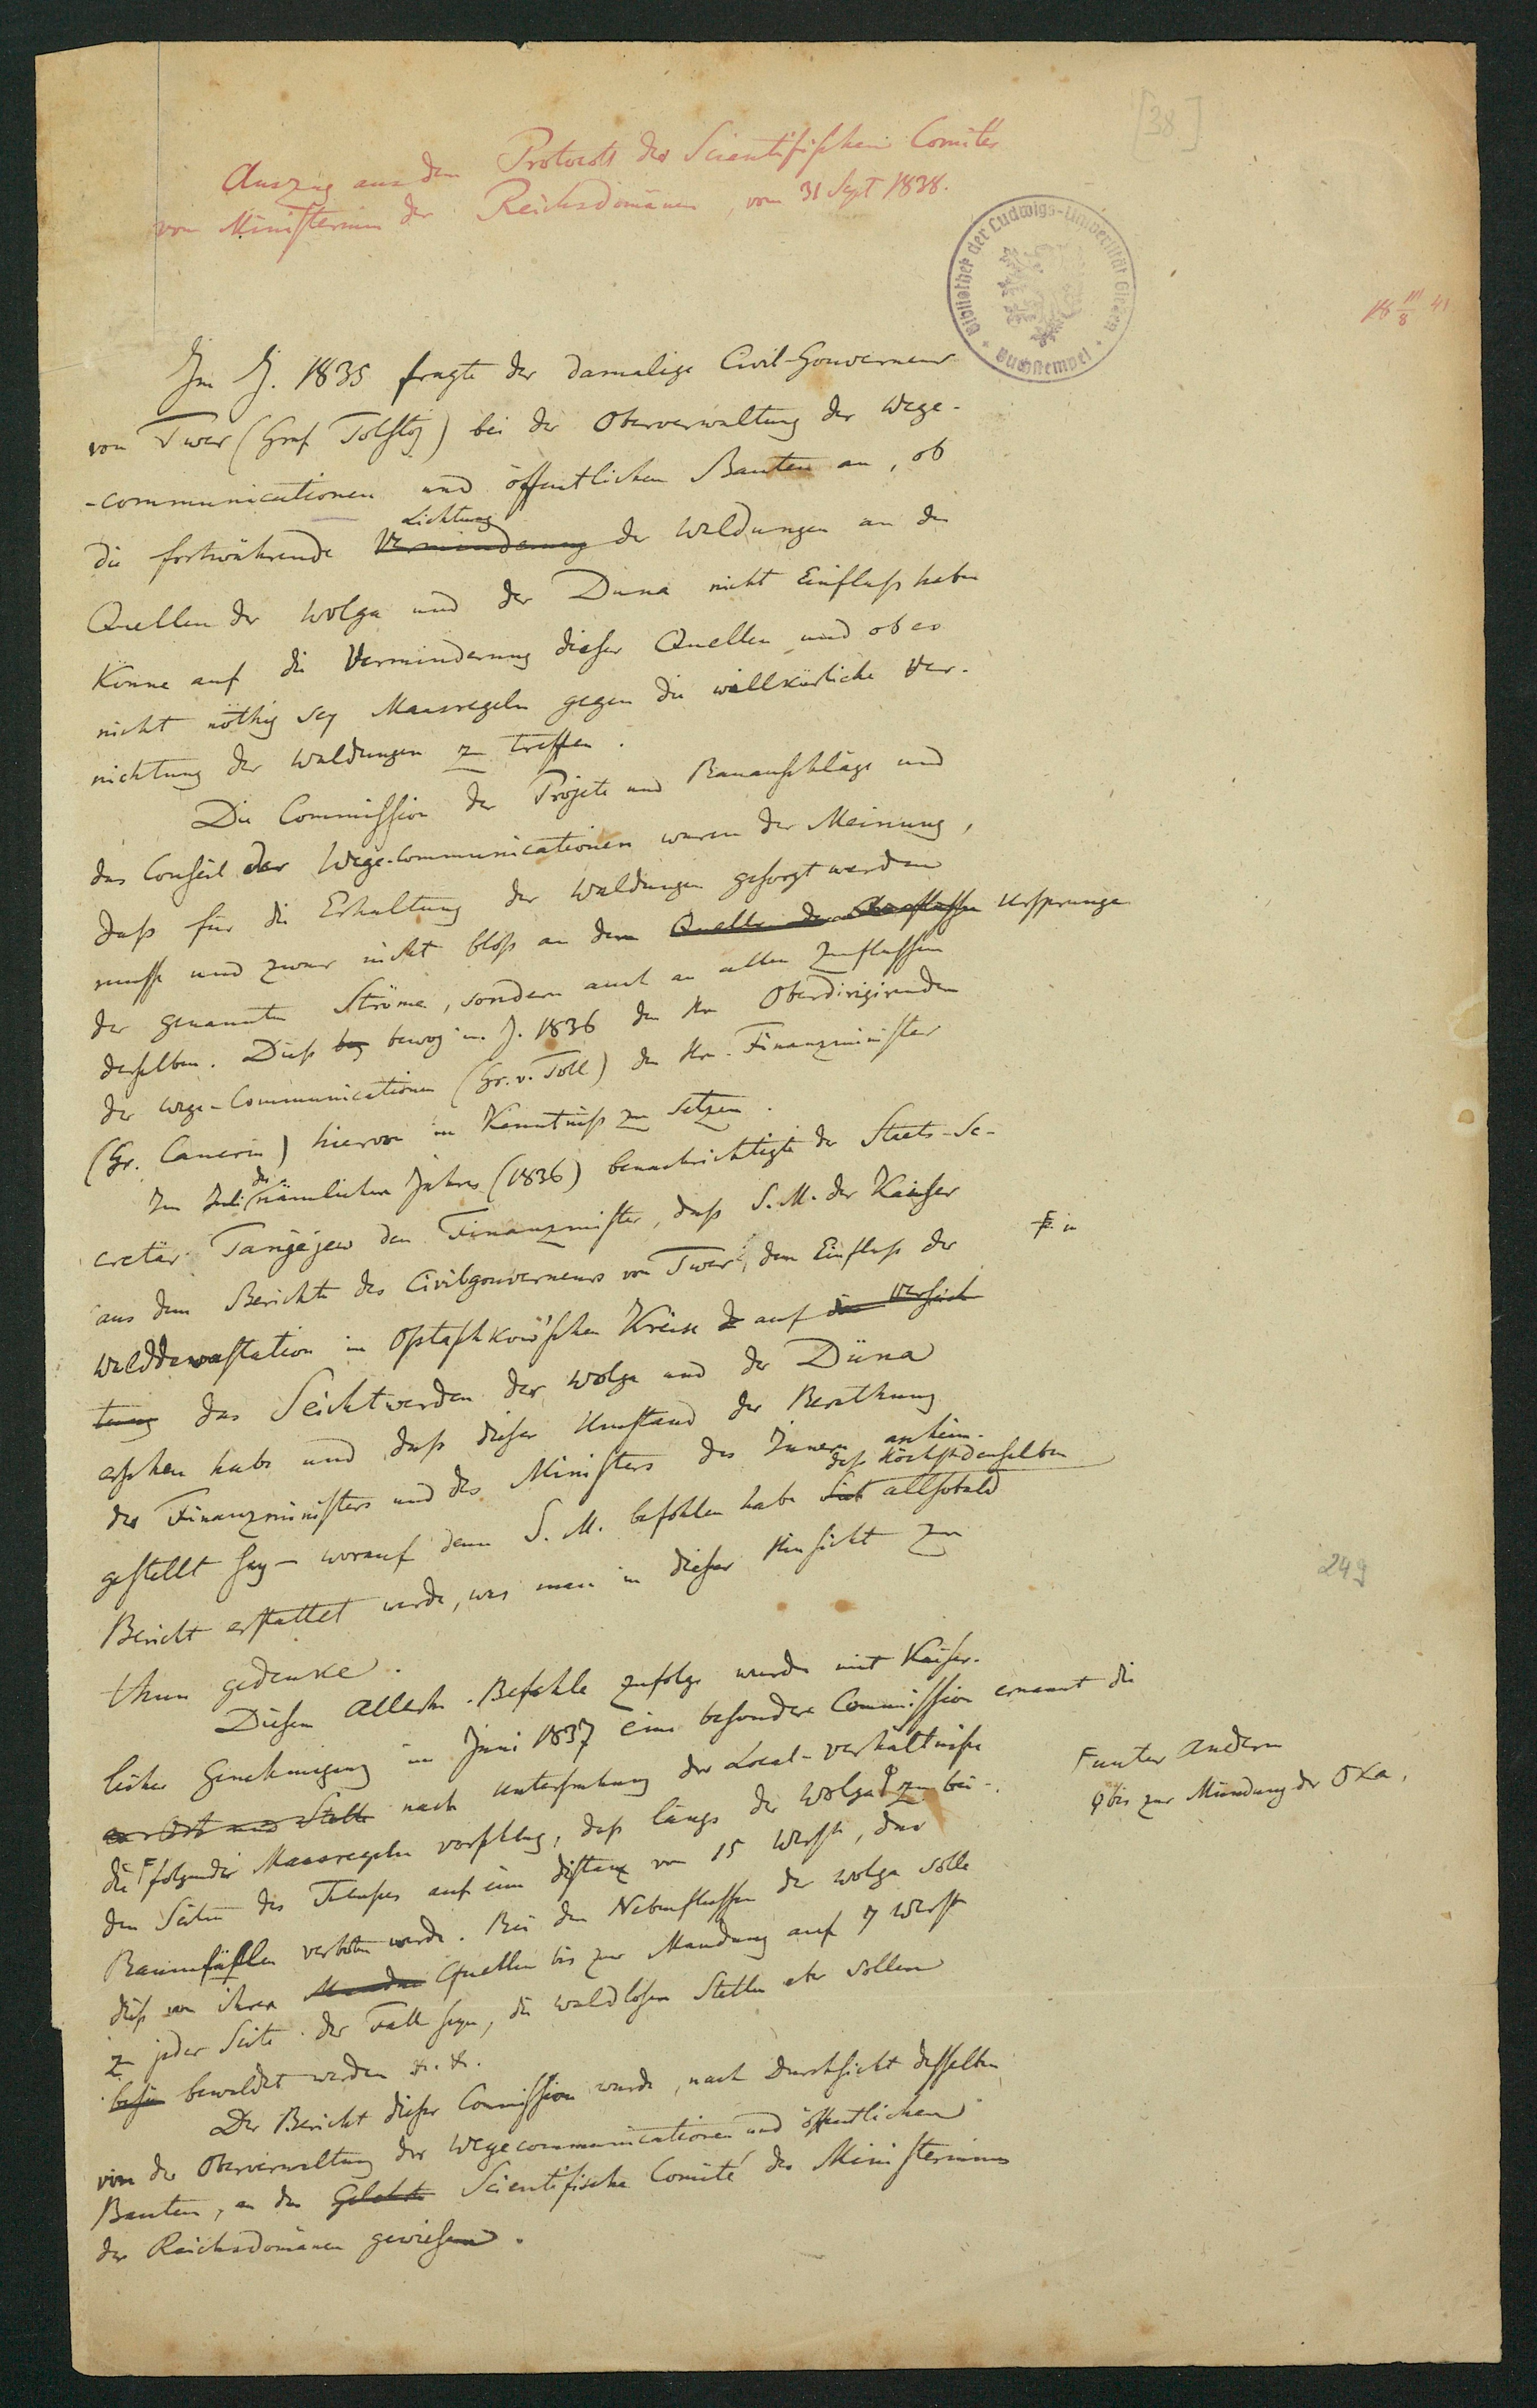 [38]
Auszug aus dem Protocoll des Scientifischen Comités
vom Ministerium der Reichsdomänen, vom 31 Sept 1838.
Bibliothek der Ludwigs-Universität Gießen
Buchstempel
18 III/8 41
Im J. 1835 fragte der damalige Civil-Gouverneur
von Twer (Graf Tolstoj) bei der Oberverwaltung der Wege-
-communicationen und öffentlichen Bauten an, ob
Lichtung
die fortwährende Verminderung der Waldungen an den
Quellen der Wolga und der Duna nicht Einfluß haben
könne auf die Verminderung dieser Quellen und ob es
nicht nöthig sey Maasregeln gegen die willkürliche Ver-
nichtung der Waldungen zu treffen.
Die Commission der Projete und Bauanschläge und
das Conseil der Wege-Communicationen waren der Meinung,
daß für die Erhaltung der Waldungen gesorgt werden
müsse und zwar nicht bloß an dem Quelle der Ursprunge
der genannten Ströme, sondern auch an allen Zuflussen
derselben. Dieß bewog im J. 1836 den Hr Oberdirigirenden
der Wege-Communicationen (Gr. v. Toll) den Hr. Finanzminister
(Gr. Cancrin) hiervon in Kenntniß zu setzen.
des
Im Juli nämlichen Jahres (1836) benachrichtigte der Staats-Se-
cretär Tanejew den Finanzminister, daß S. M. der Kaiser
aus dem Berichte des Civilgouverneurs von Twer, den Einfluß der
F. in
Walddevastation im Ostaschkow'schen Kreise auf die Versich
tung das Seichtwerden der Wolga und der Düna
ersehen habe und daß dieser Umstand der Berathung
des Finanzministers und des Ministers des Innern anheim-
daß Höchstdenselben
gestellt sey – worauf denn S. M. befohlen habe allsobald
Bericht erstattet werde, was man in dieser Hinsicht zu
thun gedenke.
249
Diesem Allerh. Befehle zufolge wurde mit Kaiser-
licher Genehmigung im Juni 1837 eine besondere Commission ernannt die
an Ort und Stelle nach Untersuchung der Local-Verhältnisse
F unter andern
die F folgende Maasregeln vorschlug, daß längs der Wolga φ zu bei-
φ bis zur Mündung der Oka,
den Seiten des Flusses auf eine Distanz von 15 Werst, das
Baumfällen verboten werde. Bei den Nebenflussen der Wolga solle
dieß von ihren Quellen bis zur Mundung auf 7 Werst
zu jeder Seite der Fall seyn, die waldlosen Stellen aber sollen
bewaldet werden &c. &c.
Der Bericht dieser Commission wurde, nach Durchsicht desselben
von der Oberverwaltung der Wegecommunicationen und öffentlichen
Bauten, an das Gelehrte Scientifische Comité des Ministeriums
der Reichsdomänen gewiesen.